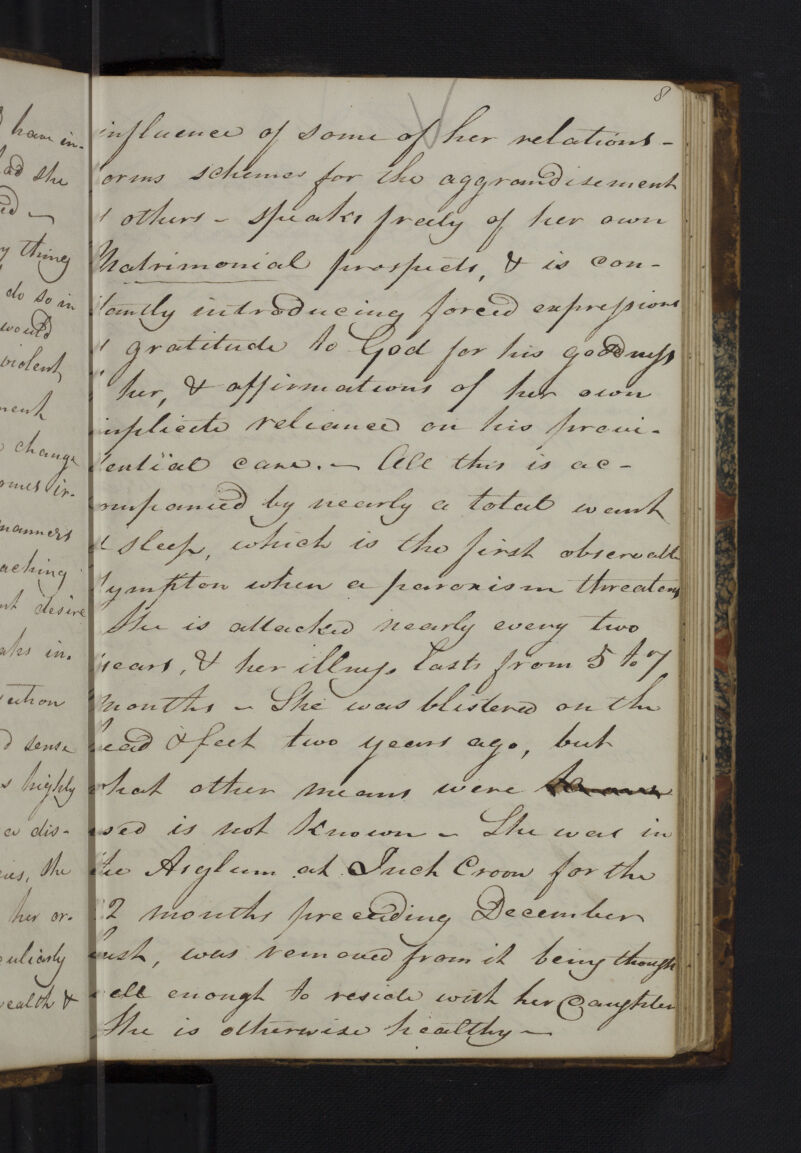 8
influence of some of her relations -
orms schemes for the aggrandisement
others - speaks freely of her own
Matrimonial prospects, & is con-
tantly introducing forced expressions
gratitude to God for his goodness
her, & affirmations of her own
implicite reliance on his provi-
dential care. - All this is ac-
ompanied by nearly a total want
sleep, which is the first observable
Sympton when a paroxism threatens
She is attacked nearly every two
years, & her illness lasts from 5 to 7
months - She was blistered on the
head & feet two years ago, but
what other means were
used is not known - She was in
the Asylum at Inch Croon for the
12 months preceeding December
last, was removed from it being though
well enough to reside with her Daughter
She is otherwise healthy -
have in-
had she
ed -
y thing
do so in
would
violent
ment
change
omes ir-
manners
aching
nt desire
aks in-
ection
d sense
s highly
a dis-
ies, she
her or-
culiarly
ealth &